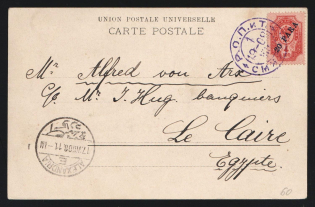 UNION POSTALE UNIVERSELLE
CARTE POSTALE
Mr Alfred von Arx
C/o Mr J. Hug. banquiers
Le Caire
Egypte
Р.О.П.иТ.
ALEXANDRIA
60